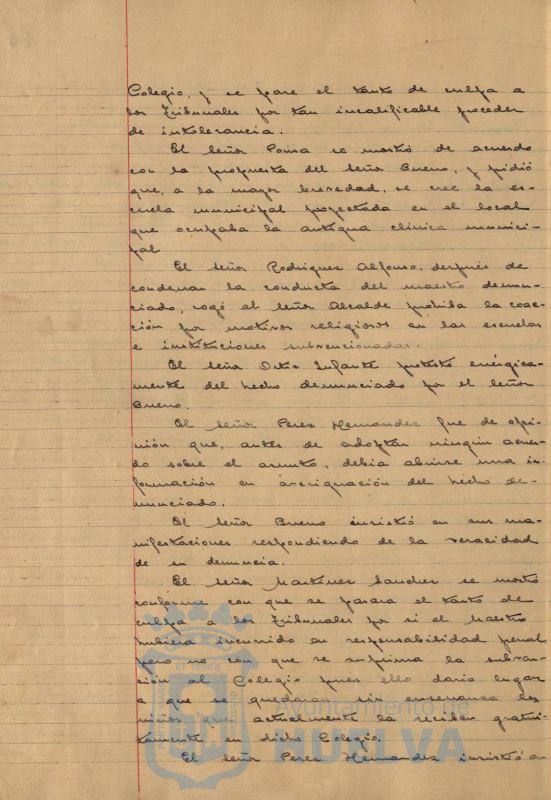 Colegio, y se pase el tanto de culpa a
los Tribunales por tan incalificable proceder
de intolerancia.
El Señor Ponsa se mostró de acuerdo
con la propuesta del Señor Bueno, y pidió
que, a la mayor brevedad, se cree la es-
cuela municipal proyectada en el local
que ocupaba la antigua clínica munici-
pal
El Señor Rodriguez Alfonso, después de
condenar la conducta del maestro denun-
ciado, rogó al Señor Alcalde prohiba la coac-
ción por motivos religiosos en las escuelas
e instituciones subvencionadas.
El Señor Ortiz Infante protestó enérgica-
mente del hecho denunciado por el Señor
Bueno.
El Señor Perez Hernandez fue de opi-
nión que, antes de adoptar ningún acuer-
do sobre el asunto, debia abrirse una in-
formación en averiguación del hecho de-
nunciado.
El Señor Bueno insistió en sus ma-
nifestaciones respondiendo de la veracidad
de su denuncia.
El Señor Martinez Sanchez se mostró
conforme con que se pasara el tanto de
culpa a los Tribunales por si el Maestro
hubiera incurrido en responsabilidad penal
pero no con que se suprima la subven-
ción al Colegio pues ello daria lugar
a que se quedaran sin enseñanza los
niños que actualmente la reciben gratui-
tamente en dicho Colegio.
El Señor Perez Hernandez insistió en
Ayuntamiento de
HUELVA